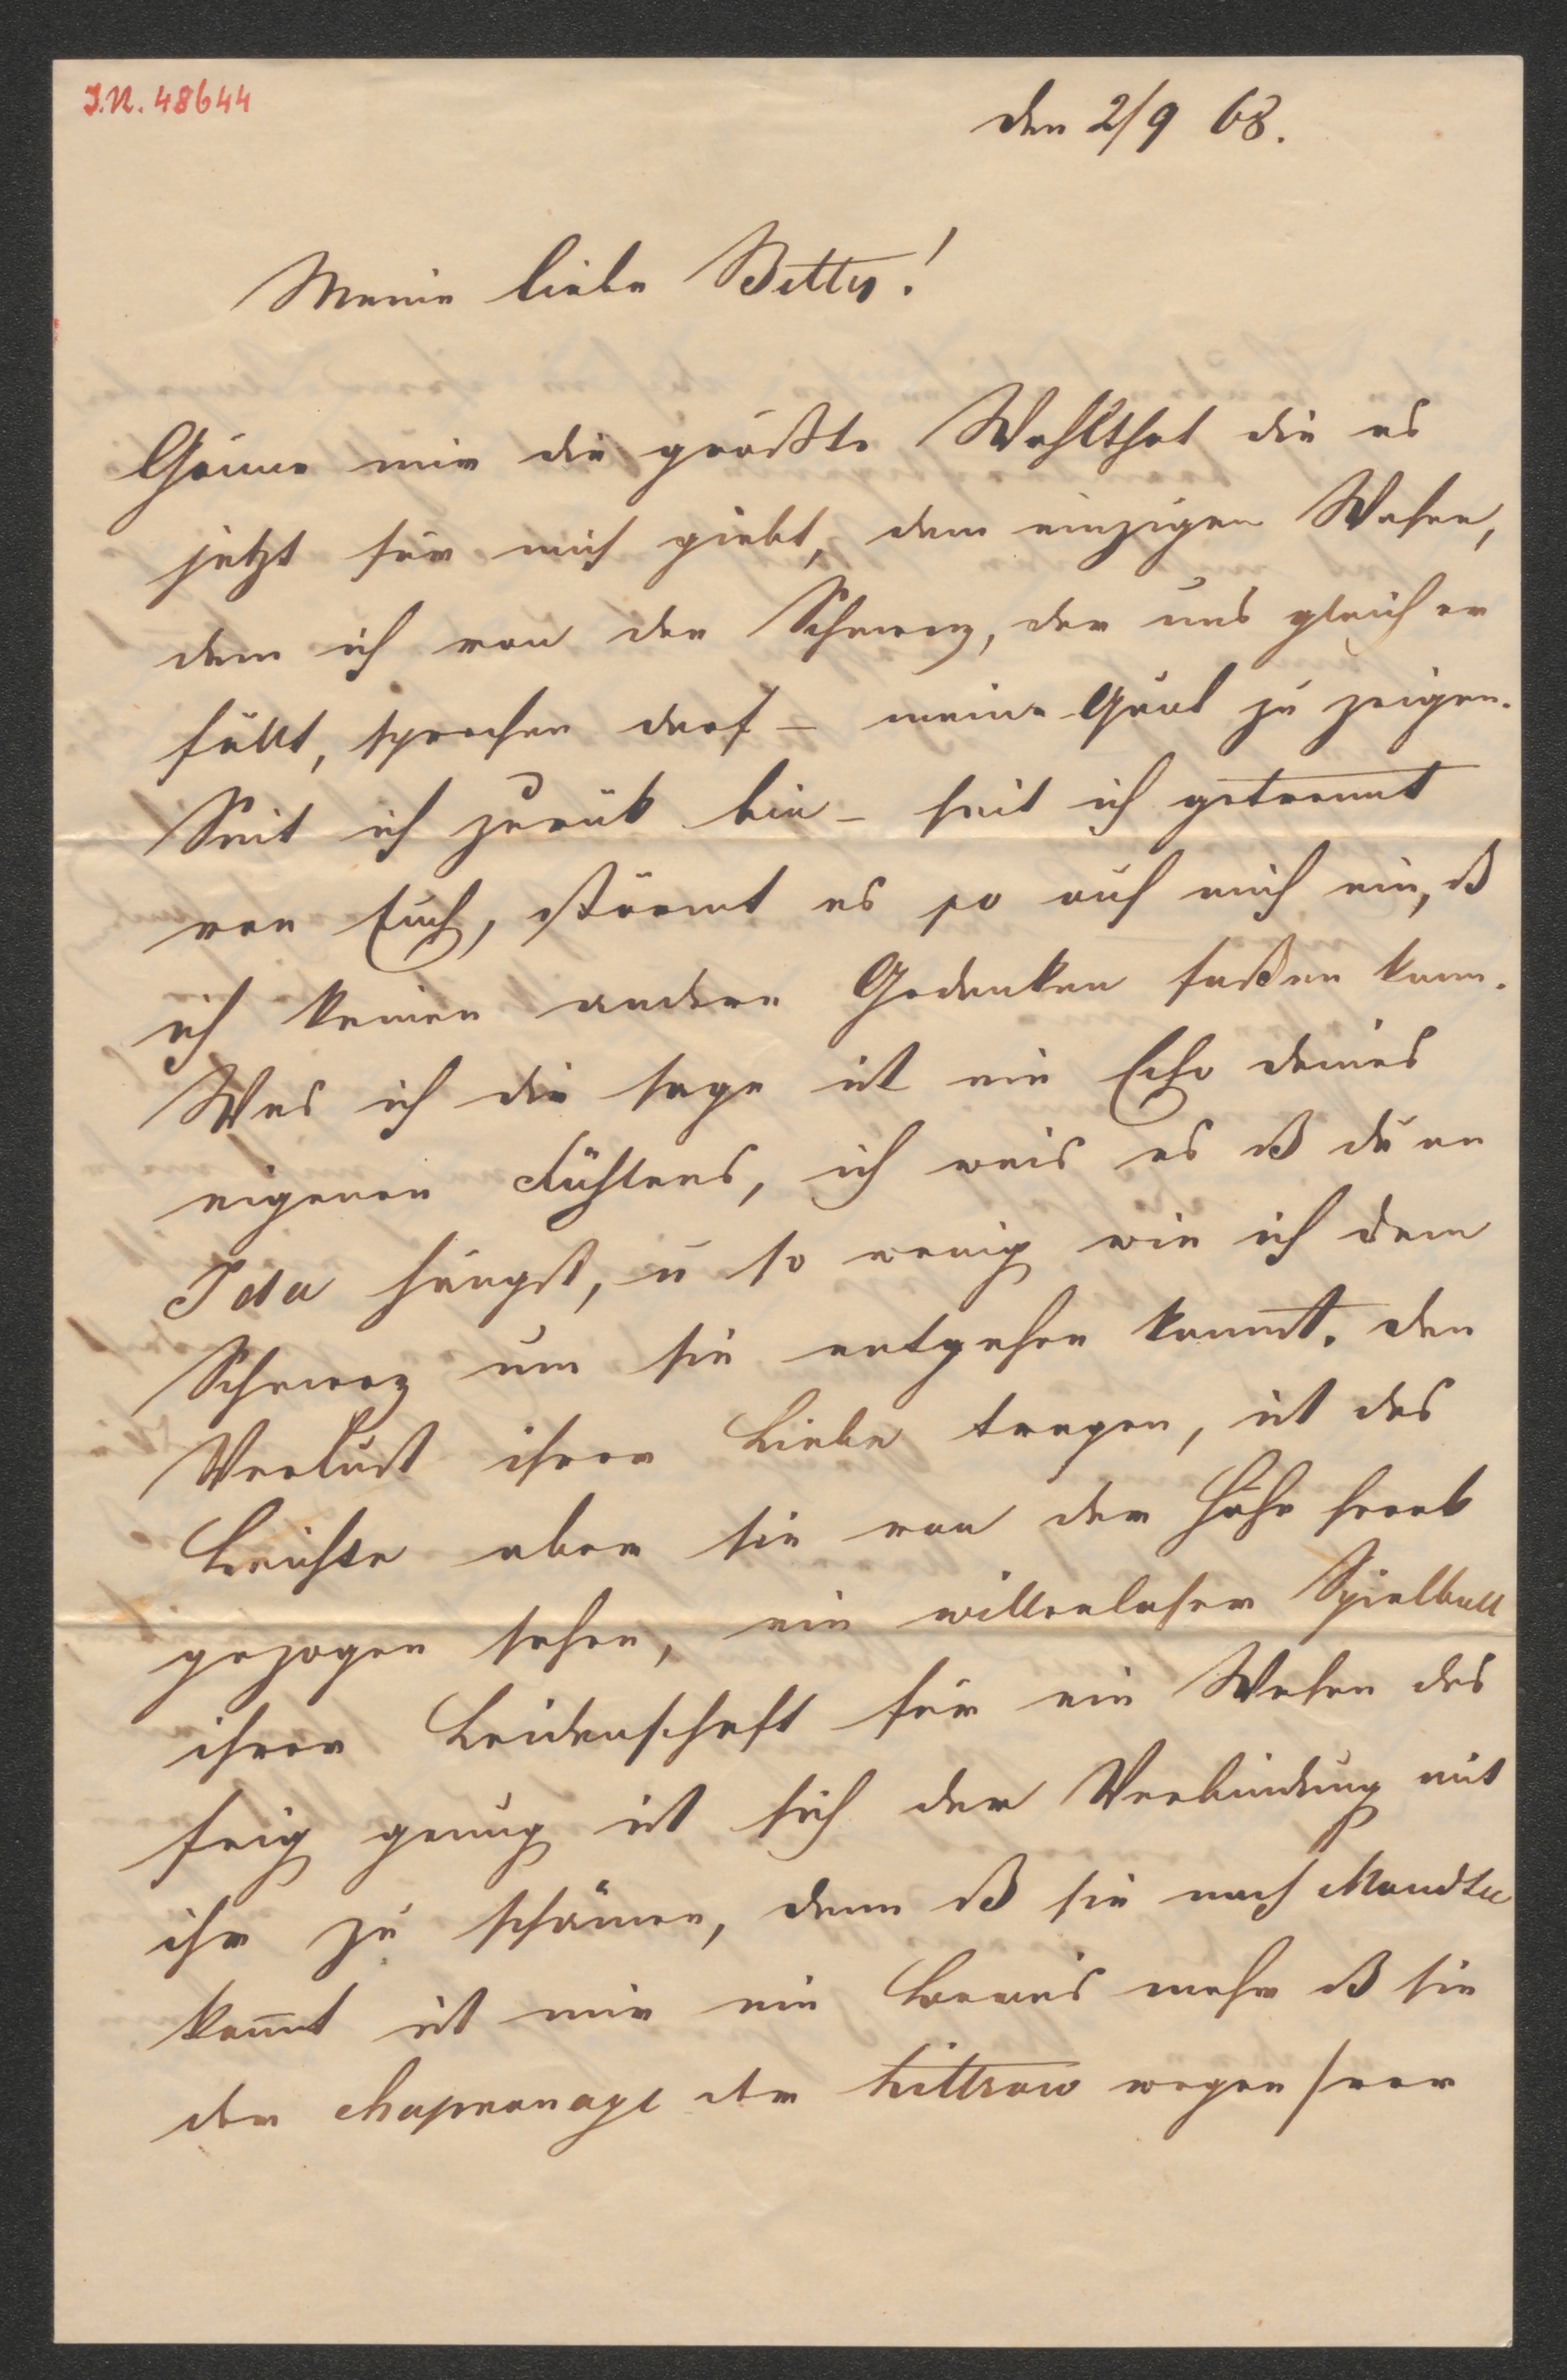 J.N. 48644
den 2/9 68.
Meine liebe Betty!
Gönne mir die größte Wohlthat die es
jetzt für mich giebt, dem einzigen Wesen,
dem ich von den Schmerz, der uns gleich er
füllt, sprechen darf – meine Qual zu zeigen.
Seit ich zurük bin – seit ich getrennt
von Euch, stürmt es so auf mich ein, ß
ich keinen andern Gedanken faßen kann.
Was ich dir sage ist ein Echo deines
eigenen Fühlens, ich weis es ß du an
Ida hängst, u so wenig wie ich dem
Schmerz um sie entgehen kannst. den
Verlust ihrer Liebe tragen, ist das
Leichte aber sie von der Höhe herab
gezogen sehen, ein willenloser Spielball
ihrer Leidenschaft für ein Wesen das
feig genug ist sich der Verbindung mit
ihr zu schämen, denn ß sie nach
kommt ist mir ein Beweis mehr ß sie
der chaperonage der Littrow wegen